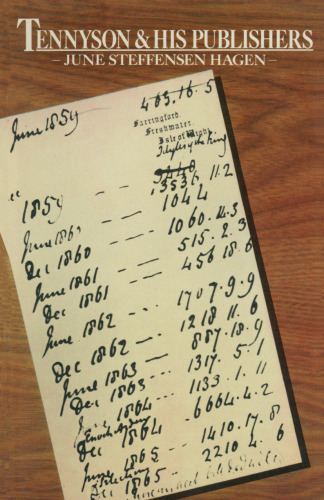 TENNYSON & HIS PUBLISHERS
– JUNE STEFFENSEN HAGEN –
June 1859 463.16.5
Farringford,
Freshwater,
Isle of Wight.
Idylls of the King
3536 11.2
" 1859 -- 1044
June 1860 -- 1060.14.3
Dec 1860 -- 515.2.3
June 1861 -- 456 18.6
Dec 1861
June 1862 -- 1707.9.9
Dec 1862 -- 1218 11.6
June 1863 -- 887.18.9
Dec 1863 -- 1317.5.1
June 1864 -- 1133.1.11
Enoch Arden
Dec 1864 -- 6664.4.2
June 1865 -- 1410.17.8
Selections
Dec 1865 -- 2210 4.6